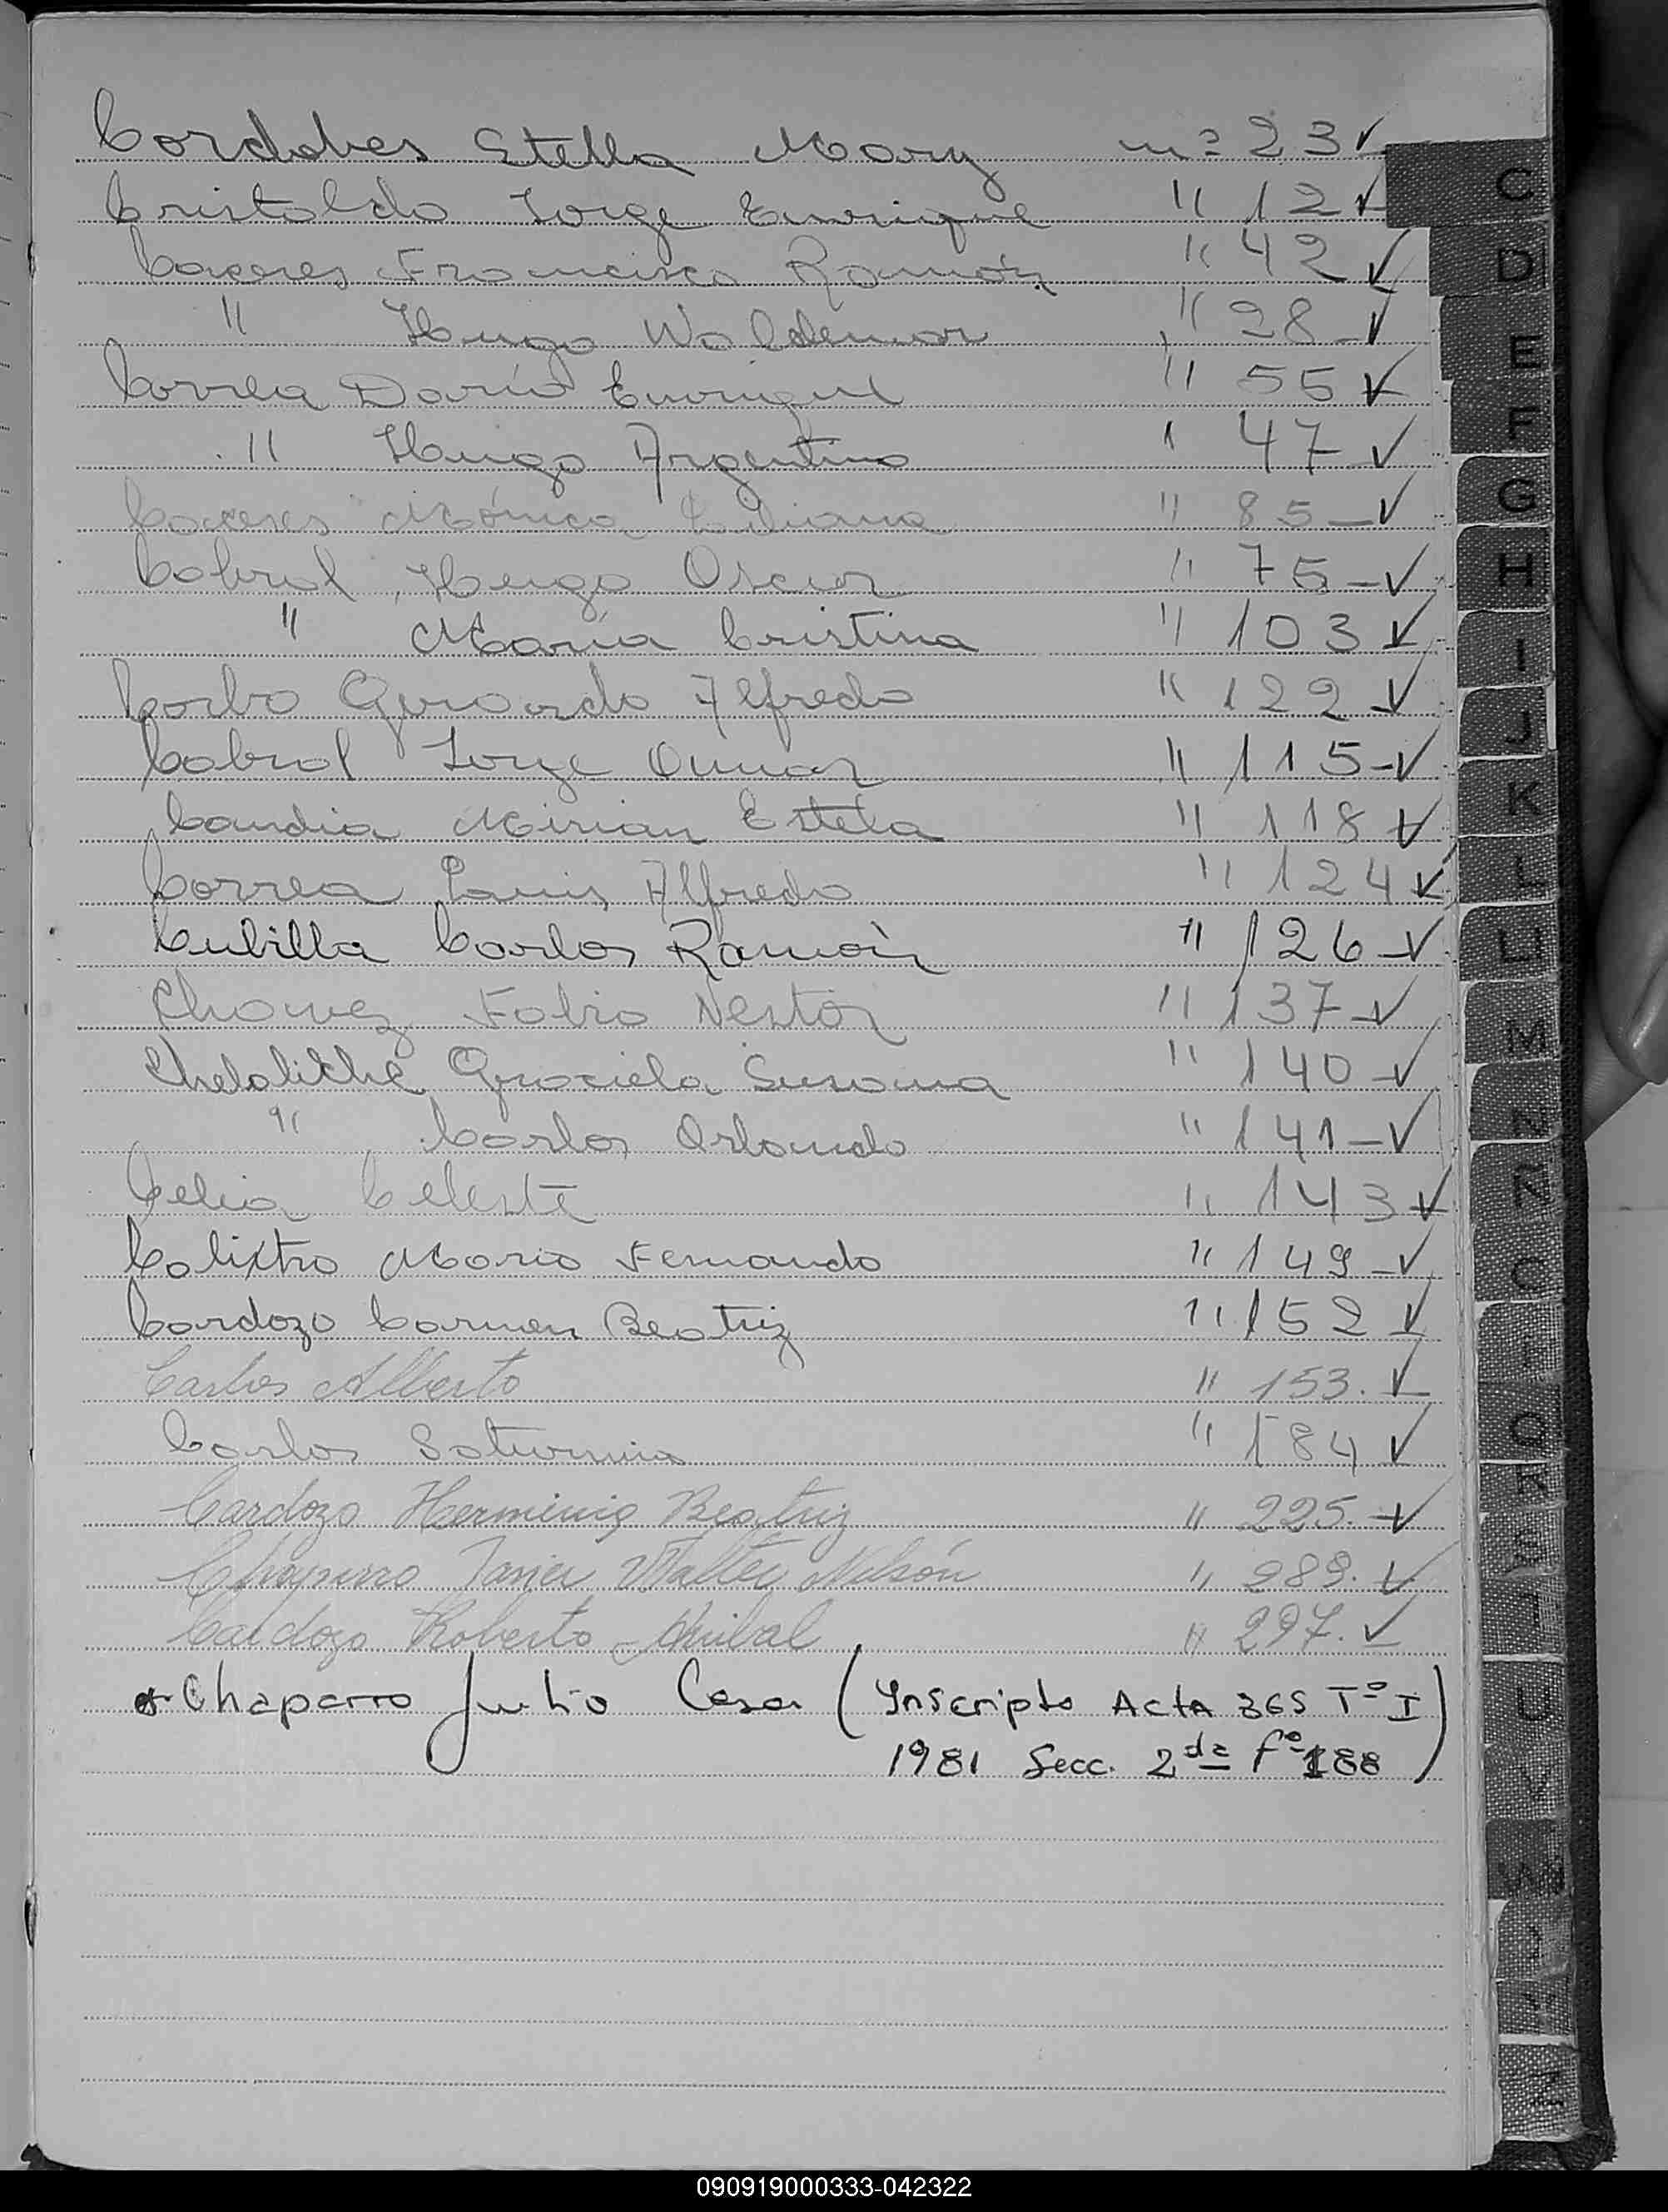 Cordobes Estella Mary nº 23 ✓
Cristaldo Jorge Enrrique " 12 ✓
Caceres Francisco Ramón " 42 ✓
" Hugo Waldemar " 28 ✓
Correa Darío Enrrique " 55 ✓
" Hugo Argentino " 47 ✓
Caceres Mónica Liliana " 85 ✓
Cabral Hugo Oscar " 75 ✓
" María Cristina " 103 ✓
Corbo Gerardo Alfredo " 122 ✓
Cabral Jorge Omar " 115 ✓
Candia Mirian Estela " 118 ✓
Correa Luis Alfredo " 124 ✓
Cubilla Carlos Ramón " 126 ✓
Chavez Fabio Nestor " 137 ✓
Chelaliche Graciela Susana " 140 ✓
" Carlos Orlando " 141 ✓
Celia Celeste " 143 ✓
Calixtro Mario Fernando " 149 ✓
Cardozo Carmen Beatriz " 152 ✓
Carlos Alberto " 153. ✓
Carlos Saturnino " 184 ✓
Cardozo Herminia Beatriz " 225. ✓
Chaparro Javier Walter Nelsón " 289. ✓
Cardozo Roberto Anibal " 297. ✓
Chaparro Julio Cesar (Inscripto Acta 365 Tº I
1981 Secc. 2da fº 188)
C
D
E
F
G
H
I
J
K
L
Ll
M
N
Ñ
O
Q
R
S
T
U
V
W
Z
090919000333-042322